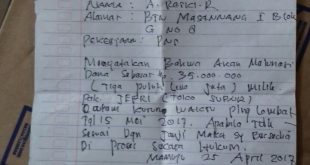 Nama : A. Rafki. R
Alamat : BTN Masannang I Blok
G NO 8
Pekerjaan : PNS
Menyatakan Bahwa Akan
Dana Sebesar Rp. 35.000.000
(Tiga puluh lima juta) Milik
Pak JEFRI (TOKO SURYA)
Dalam Kurung WAKTU Plng lambat
Tgl 15 Mei 2017. Apabila Tdk
Sesuai Dgn Janji Maka Sy Bersedia
Di Proses Secara Hukum.
Mamuju 25 April 2017